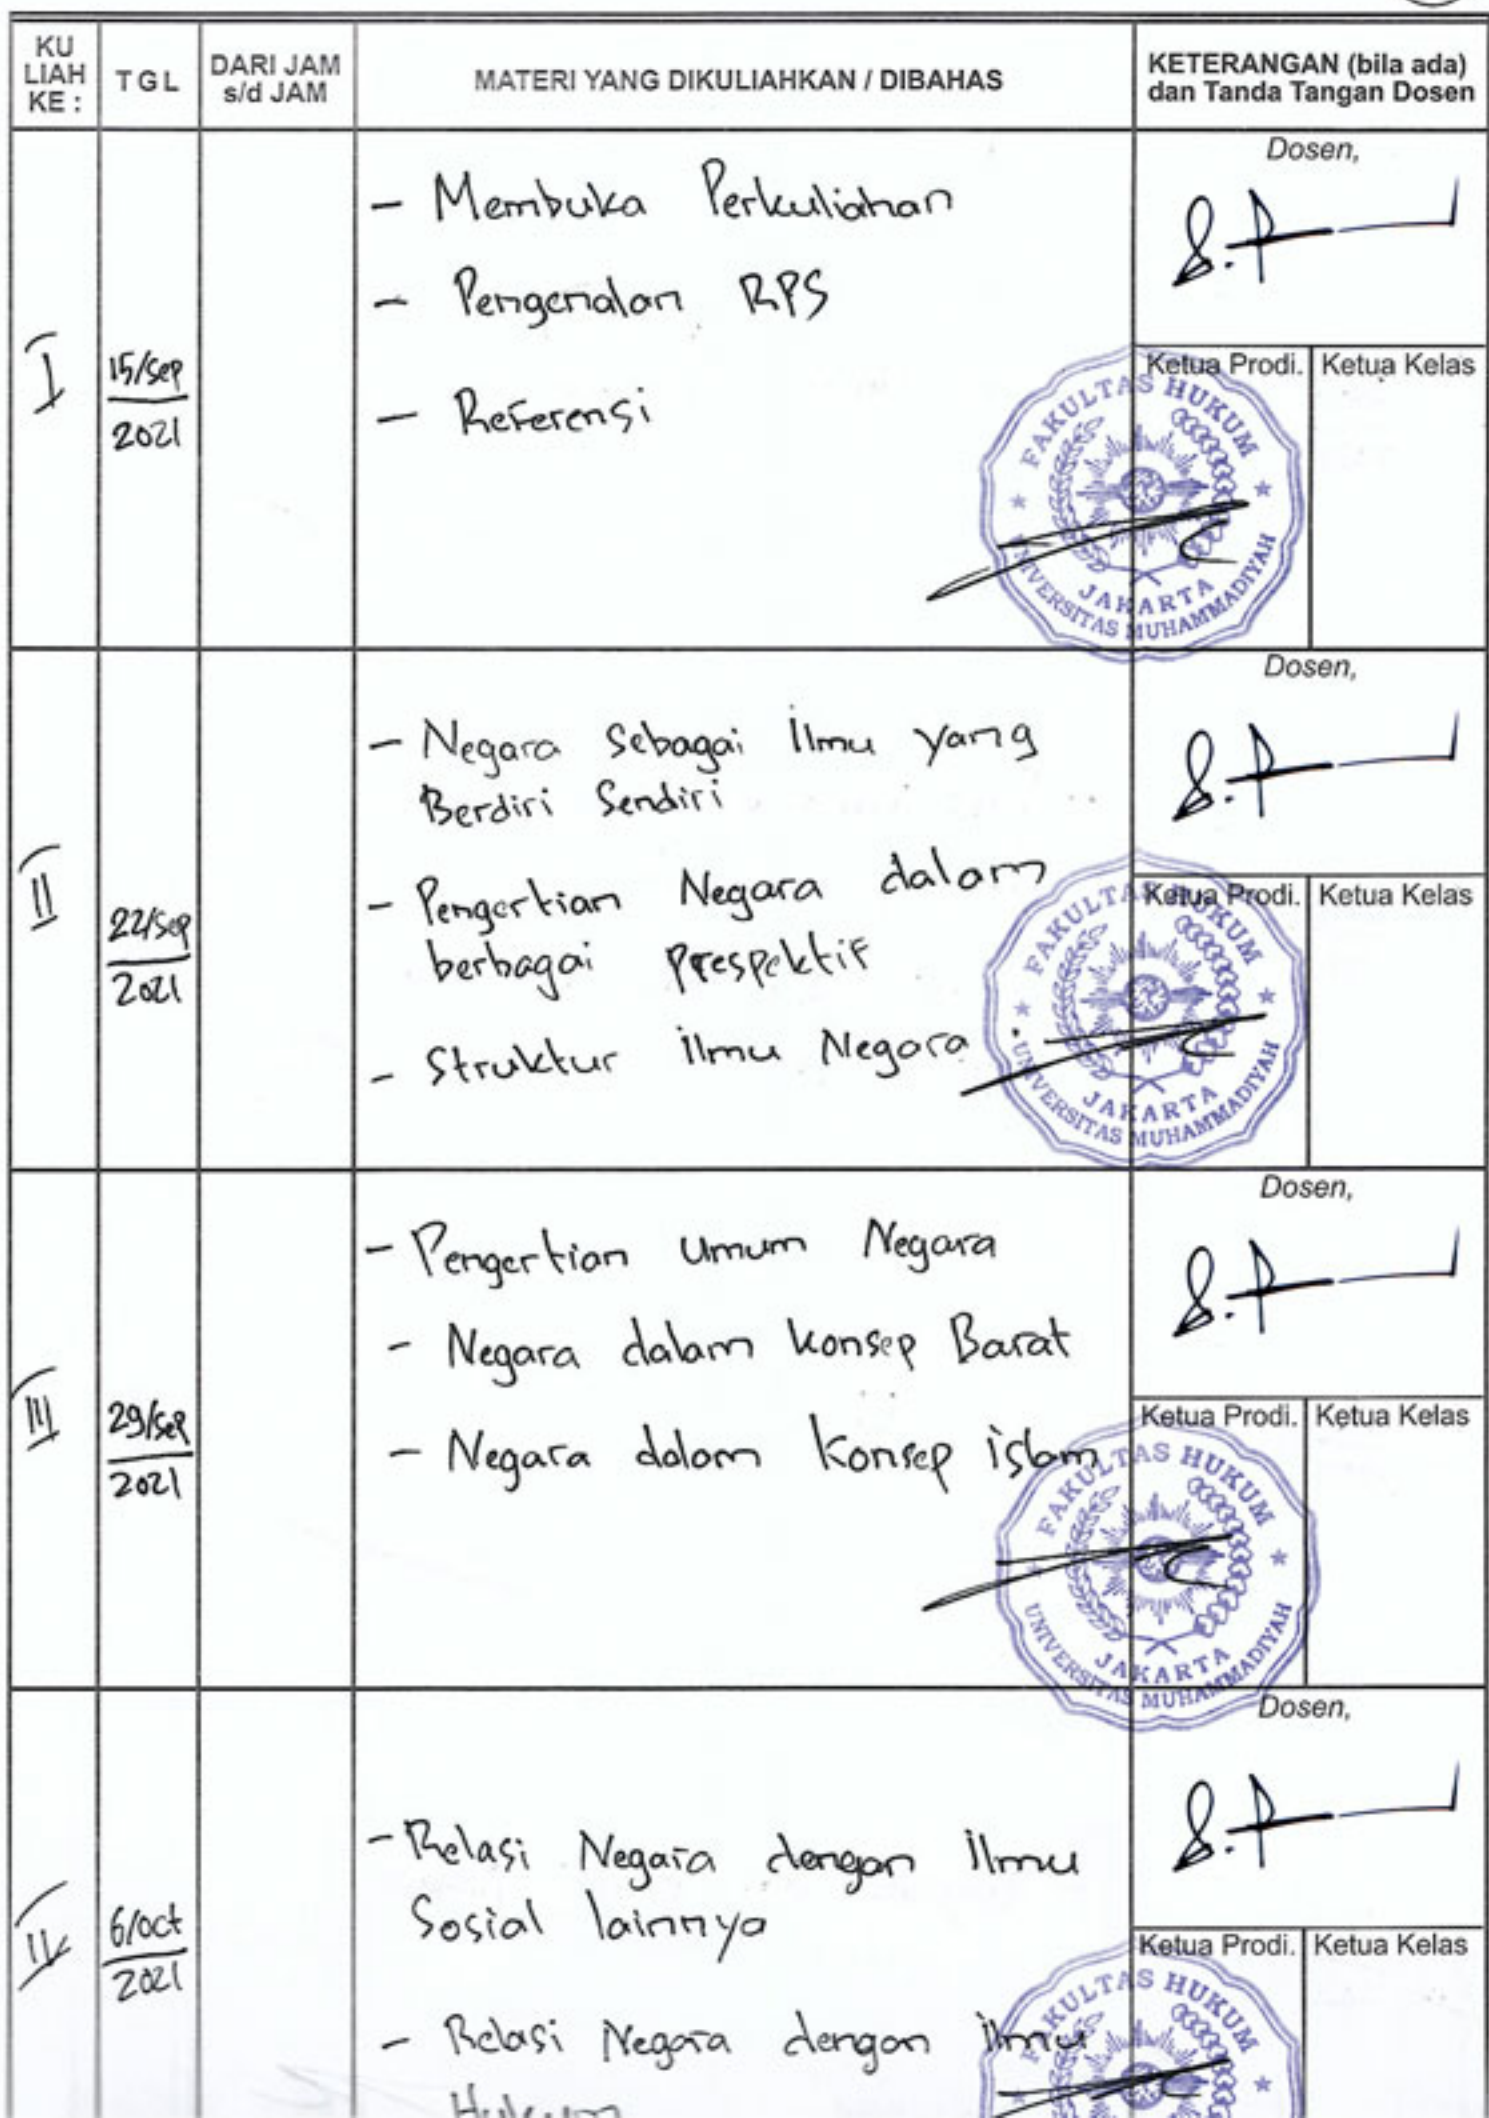 KU
LIAH
KE :
TGL
DARI JAM
s/d JAM
MATERI YANG DIKULIAHKAN / DIBAHAS
KETERANGAN (bila ada)
dan Tanda Tangan Dosen
I
15/Sep
2021
- Membuka Perkuliahan
- Pengenalan RPS
- Referensi
Dosen,
Ketua Prodi.
Ketua Kelas
FAKULTAS HUKUM
UNIVERSITAS MUHAMMADIYAH
JAKARTA
II
22/Sep
2021
- Negara sebagai Ilmu yang
Berdiri Sendiri
- Pengertian Negara dalam
berbagai Prespektif
- Struktur Ilmu Negara
Dosen,
Ketua Prodi.
Ketua Kelas
FAKULTAS HUKUM
UNIVERSITAS MUHAMMADIYAH
JAKARTA
III
29/Sep
2021
- Pengertian Umum Negara
- Negara dalam konsep Barat
- Negara dalam Konsep islam
Dosen,
Ketua Prodi.
Ketua Kelas
FAKULTAS HUKUM
UNIVERSITAS MUHAMMADIYAH
JAKARTA
IV
6/Oct
2021
- Relasi Negara dengan Ilmu
Sosial lainnya
- Relasi Negara dengan Ilmu
Hukum
Dosen,
Ketua Prodi.
Ketua Kelas
FAKULTAS HUKUM